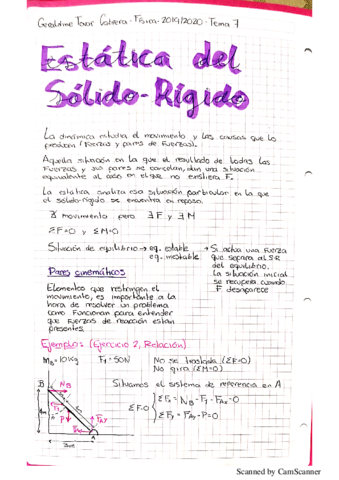 Guillermo Tovar Cabrera - Física - 2019/2020 - Tema 7
Estática del
Sólido-Rígido
La dinámica estudia el movimiento y las causas que lo
producen (Fuerzas y pares de Fuerzas).
Aquella situación en la que el resultado de todas las
Fuerzas y sus pares se cancelan, dan una situación
equivalente al caso en el que no existiera F.
La estática analiza esa situación particular en la que
el sólido-rígido se encuentra en reposo.
∄ movimiento pero ∃F y ∃M
ΣF=0 y ΣM=0
Situación de equilibrio → eq. estable
eq. inestable
→ Si actua una Fuerza
que separa al SR
del equilibrio.
La situación inicial
se recupera cuando
F desaparece
Pares cinemáticos
Elementos que restringen el
movimiento, es importante a la
hora de resolver un problema
como Funcionan para entender
que Fuerzas de reacción están
presentes.
Ejemplo: (Ejercicio 2, Relación)
m_B=10Kg F_1=50N No se traslada (ΣF=0)
No gira (ΣM=0)
Situamos el sistema de referencia en A
B N_B
4m F_1 P F_Ay
A
3m
ΣF=0 { ΣF_x = N_B - F_1 - F_Ax = 0
ΣF_y = F_Ay - P = 0
Scanned by CamScanner